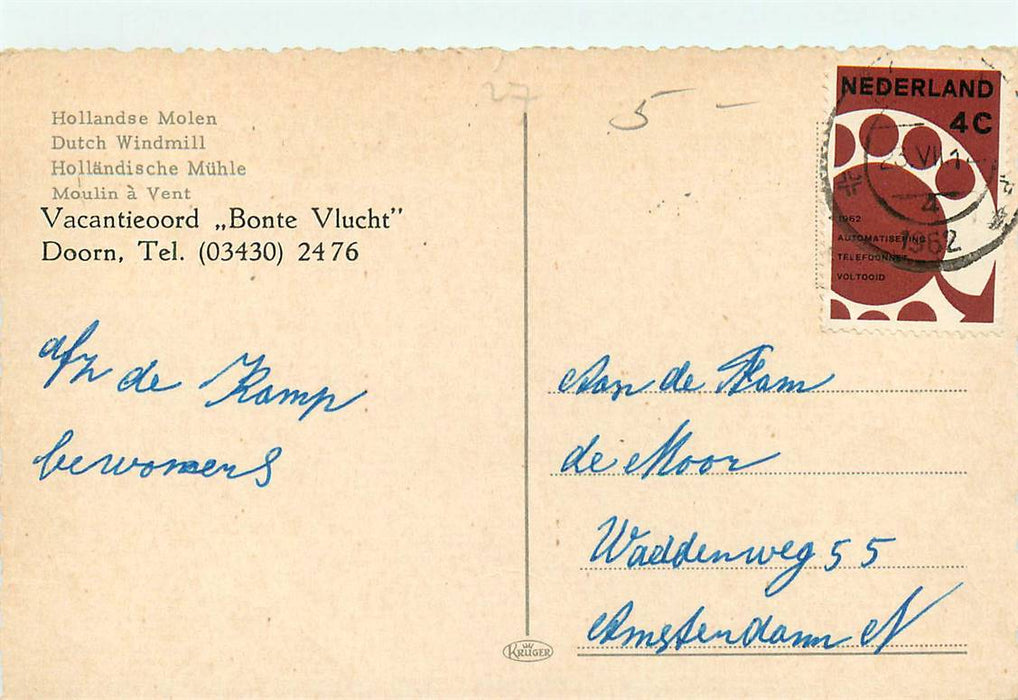 Hollandse Molen
Dutch Windmill
Holländische Mühle
Moulin à Vent
Vacantieoord „Bonte Vlucht”
Doorn, Tel. (03430) 2476
afz de Kamp
bewoners
27
5 –
NEDERLAND
4C
1962
AUTOMATISERING
TELEFOONNET
VOLTOOID
23.VII.14
4
1962
Aan de Fam
de Moor
Waddenweg 55
Amsterdam N
KRÜGER